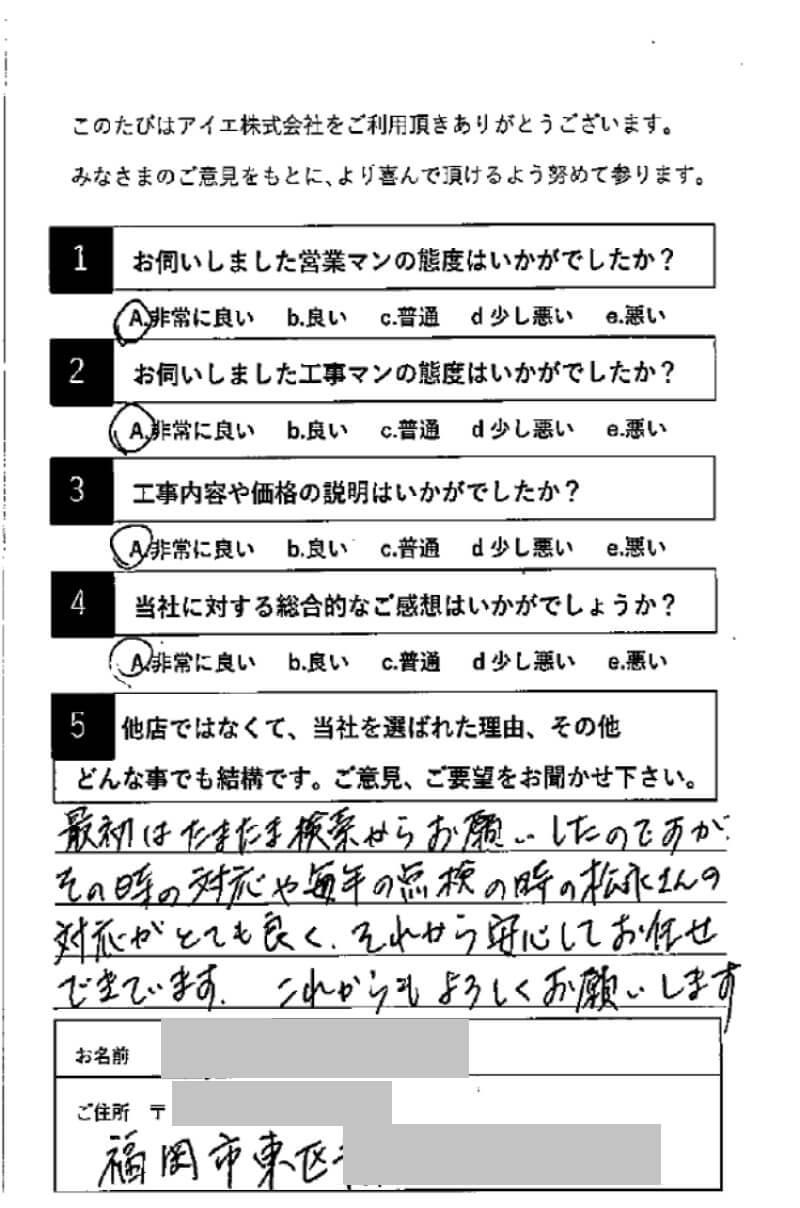 このたびはアイエ株式会社をご利用頂きありがとうございます。
みなさまのご意見をもとに、より喜んで頂けるよう努めて参ります。
1 お伺いしました営業マンの態度はいかがでしたか？
A.非常に良い b.良い c.普通 d少し悪い e.悪い
2 お伺いしました工事マンの態度はいかがでしたか？
A.非常に良い b.良い c.普通 d少し悪い e.悪い
3 工事内容や価格の説明はいかがでしたか？
A.非常に良い b.良い c.普通 d少し悪い e.悪い
4 当社に対する総合的なご感想はいかがでしょうか？
A.非常に良い b.良い c.普通 d少し悪い e.悪い
5 他店ではなくて、当社を選ばれた理由、その他
どんな事でも結構です。ご意見、ご要望をお聞かせ下さい。
最初はたまたま検索からお願いしたのですが、
その時の対応や毎年の点検の時の松永さんの
対応がとても良く、それから安心してお任せ
できています。 これからもよろしくお願いします
お名前
ご住所 〒
福岡市東区